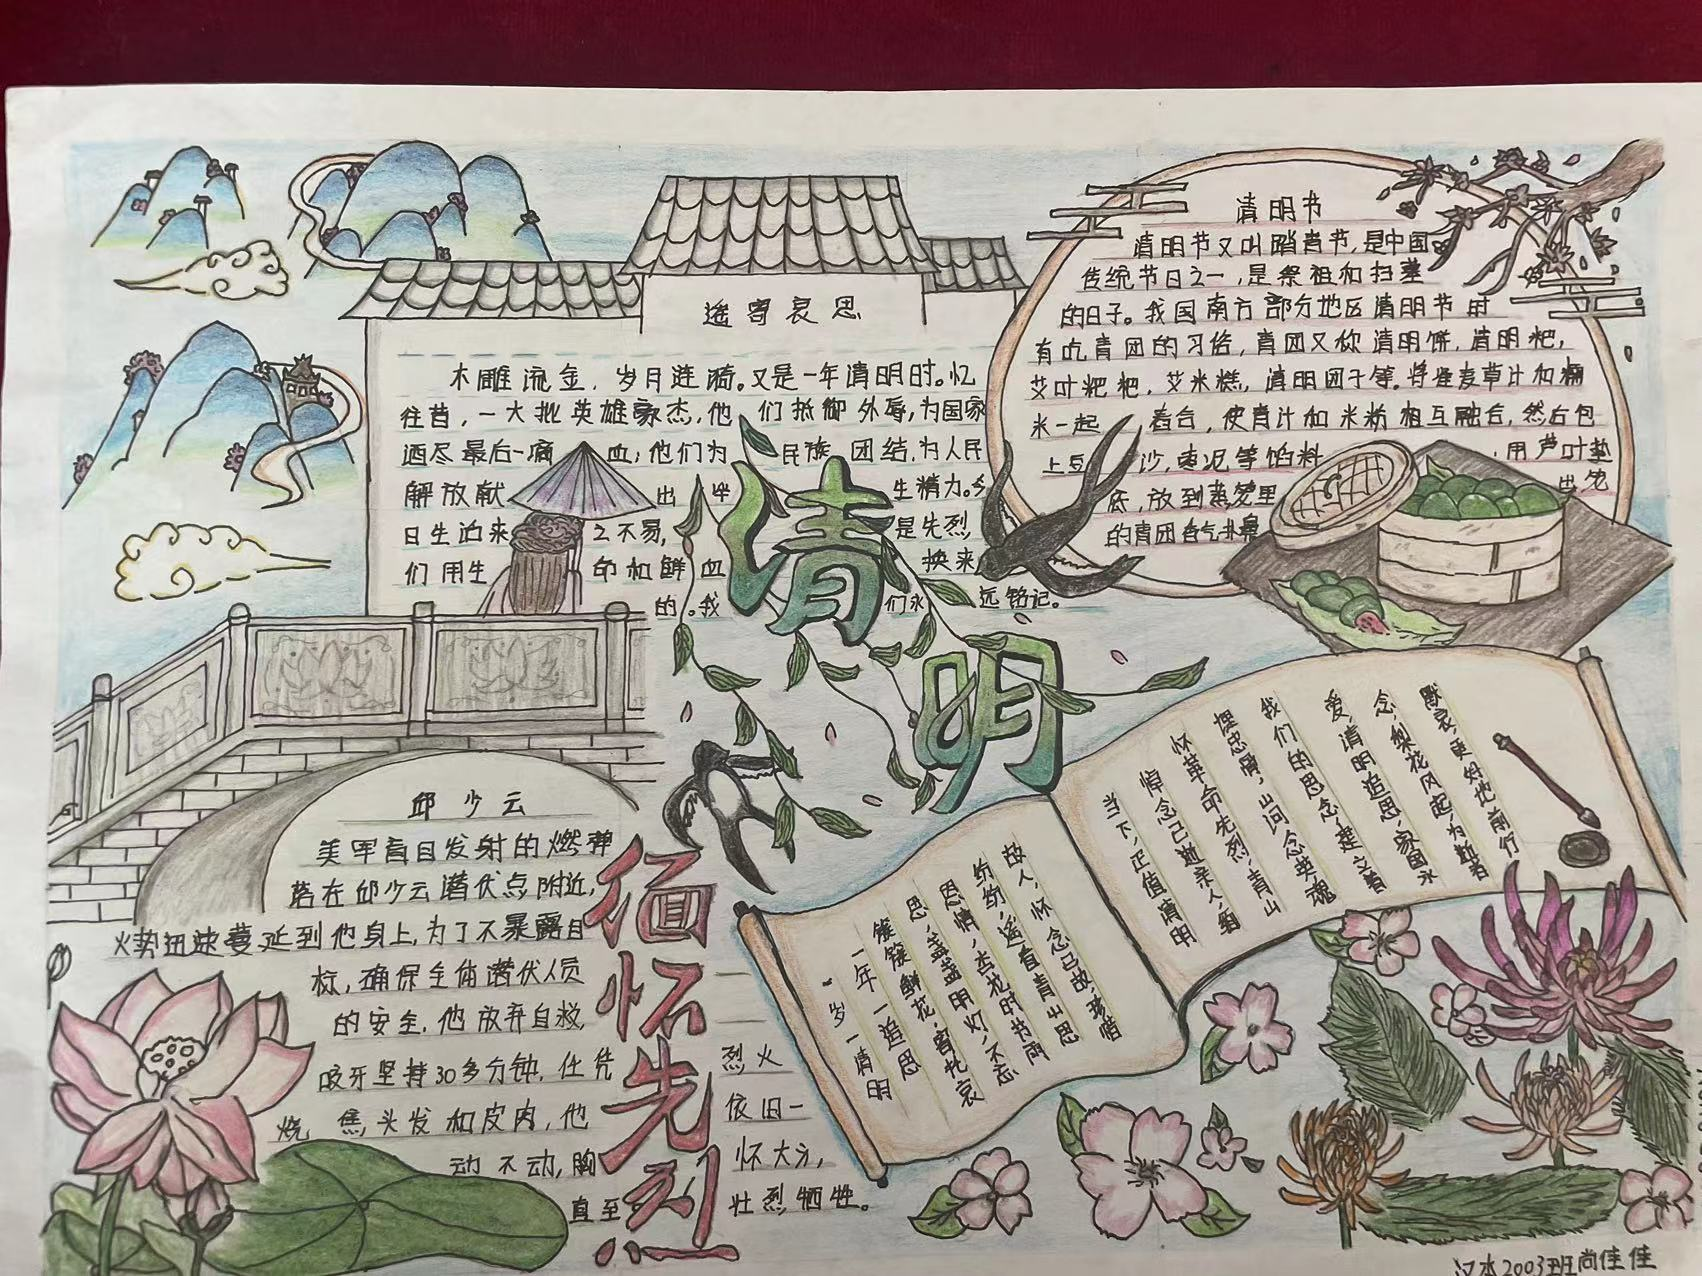 遥寄哀思
木雕流金，岁月涟漪。又是一年清明时。忆
往昔，一大批英雄豪杰，他们抵御外辱，为国家
洒尽最后一滴血；他们为民族团结，为人民
解放献出毕生精力。今
日生活来之不易，是先烈
们用生命和鲜血换来
的。我们永远铭记。
清明节
清明节又叫踏青节，是中国
传统节日之一，是祭祖和扫墓
的日子。我国南方部分地区清明节时
有吃青团的习俗，青团又称清明饼，清明粑，
艾叶粑粑，艾米糕，清明团子等。将雀麦草汁和糯
米一起舂合，使青汁和米粉相互融合，然后包
上豆沙，枣泥等馅料，用芦叶垫
底，放到蒸笼里
的青团香气非
清明
邱少云
美军盲目发射的燃弹
落在邱少云潜伏点附近，
火势迅速蔓延到他身上，为了不暴露目
标，确保全体潜伏人员
的安全，他放弃自救，
咬牙坚持30多分钟，任凭烈火
烧焦头发和皮肉，他依旧一
动不动，胸怀大方，
直至壮烈牺牲。
缅怀先烈
默哀，更好地前行
念，梨花风起，为逝者
爱，清明追思，家国永
我们的思念，建立着
埋忠骨，山河念英魂
怀革命先烈，青山
悼念已逝亲人，缅
当下，正值清明
故人，怀念已故，珍惜
纷纷，遥看青山思
思情，杏花时节雨
思，盏盏明灯，不忘
簇簇鲜花，寄托哀
一年一追思
岁一清明
汉本2003班尚佳佳